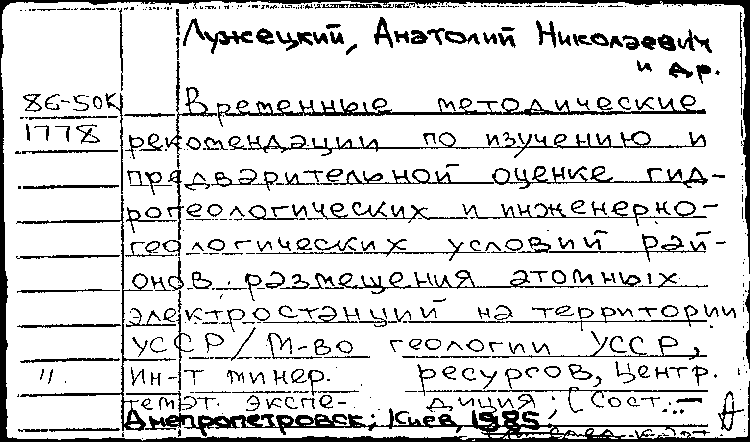 Лужецкий, Анатолий Николаевич
и др.
86-50К Временные методические
1778 рекомендации по изучению и
предварительной оценке гид-
рогеологических и инженерно-
геологических условий рай-
онов размещения атомных
электростанций на территории
УССР/М-во геологии УССР,
Ин-т минер. ресурсов, Центр.
темат. экспе- диция; (Сост. -
Днепропетровск; Киев, 1985